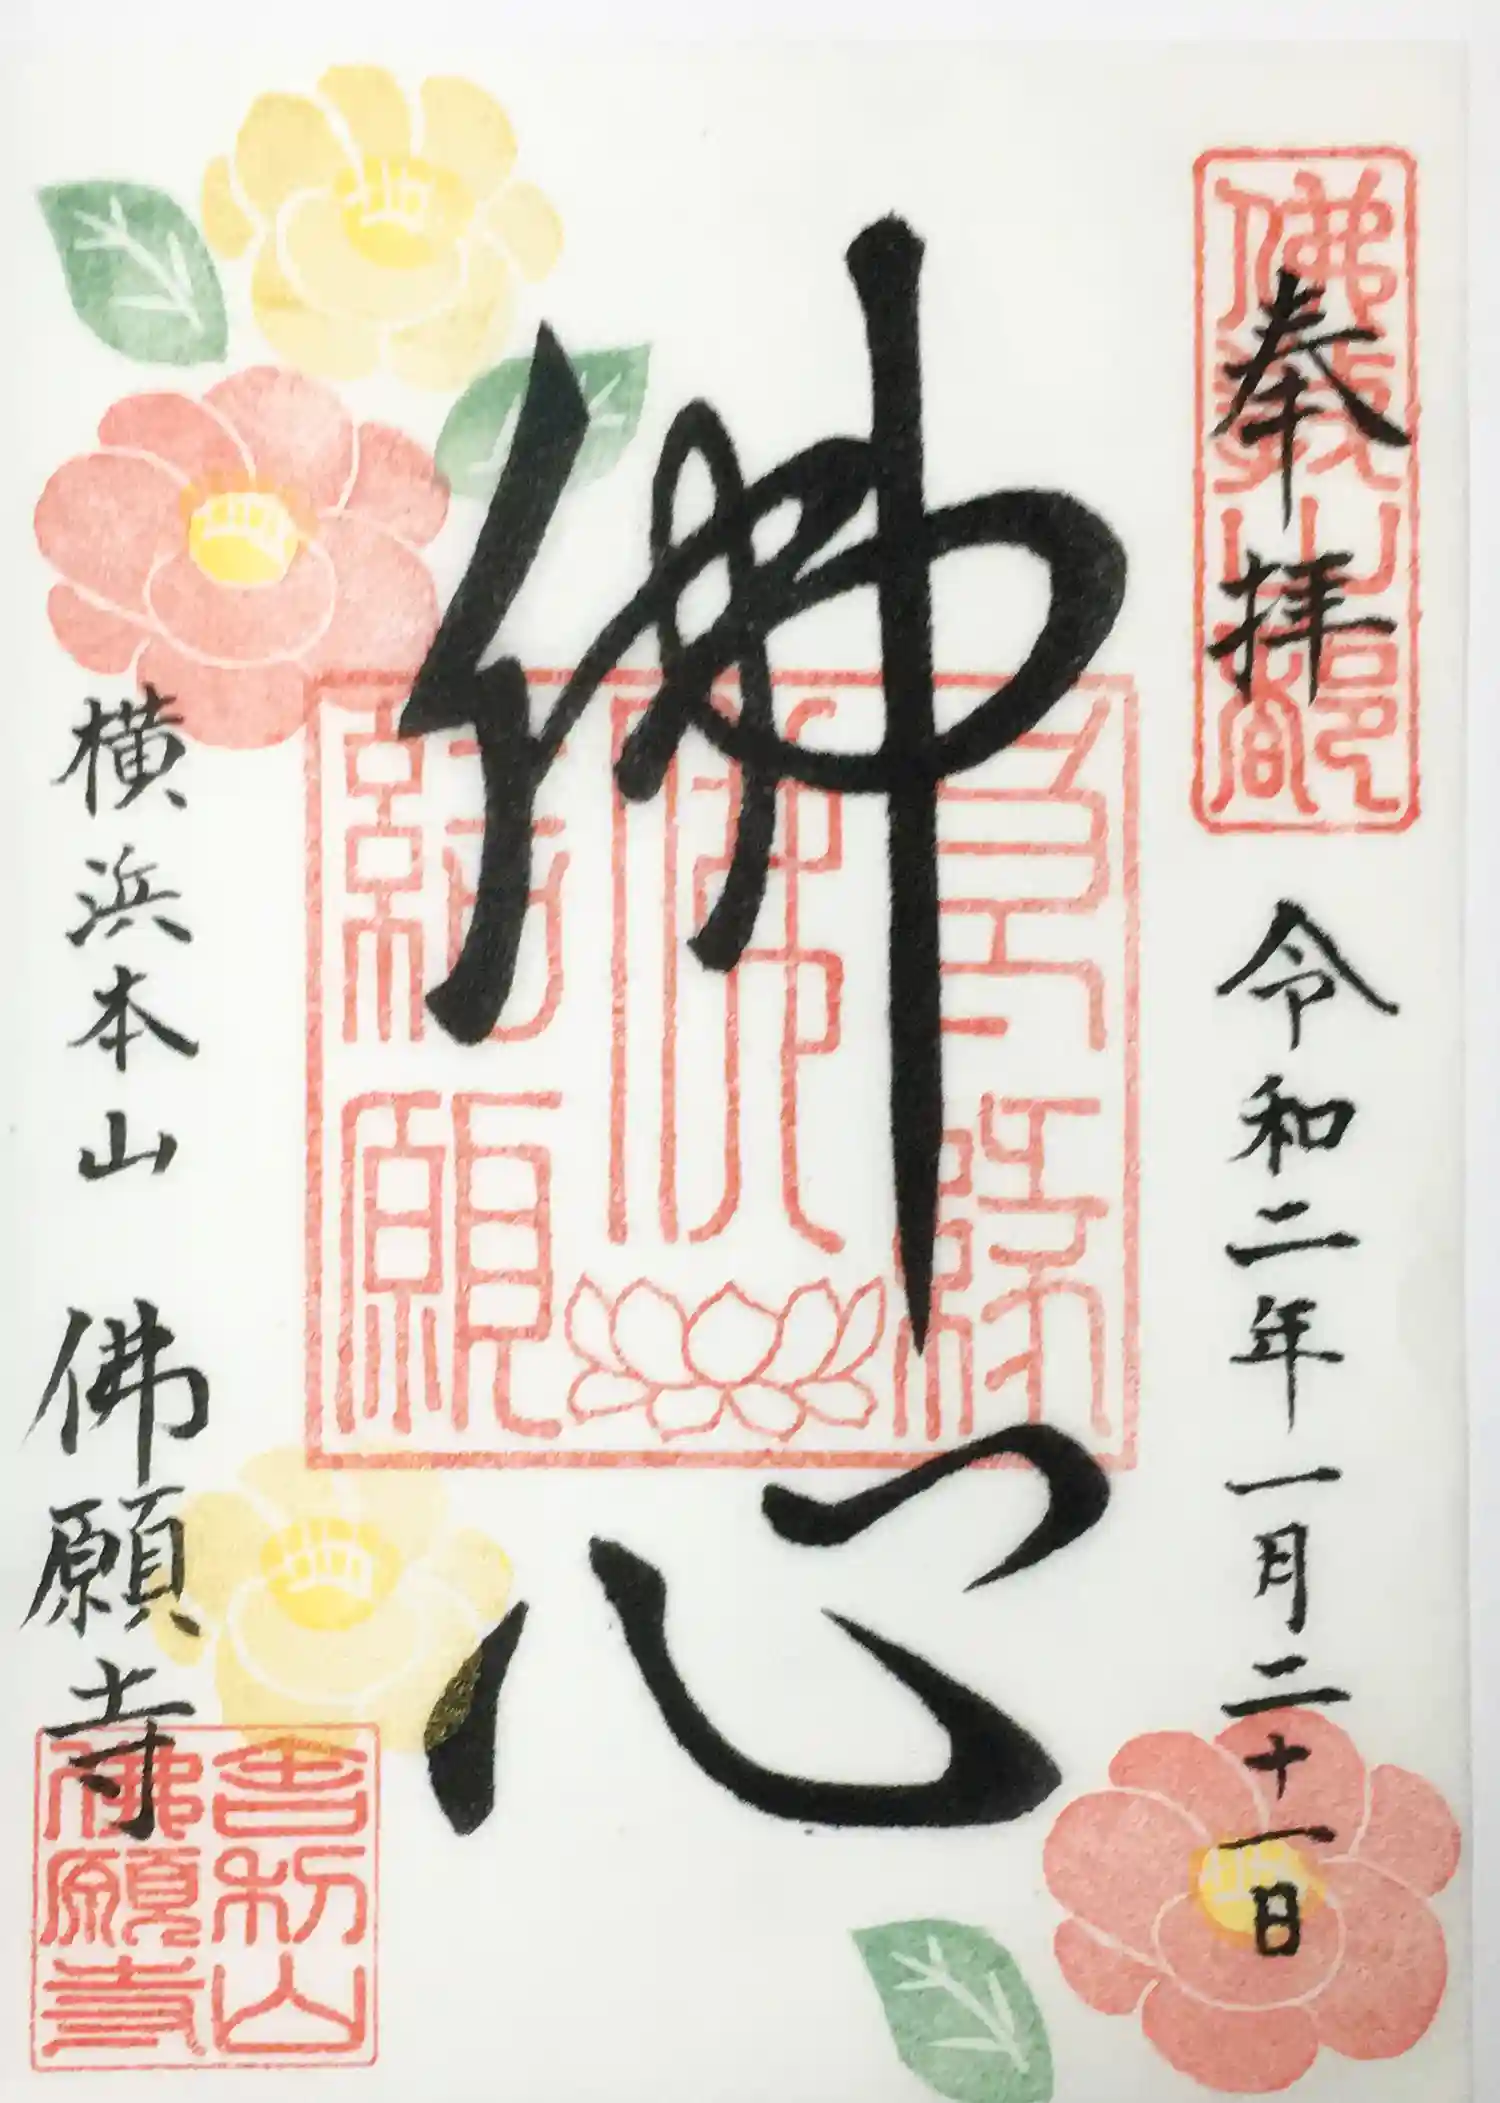 奉拝
令和二年一月二十一日
佛心
横浜本山 佛願寺
舎利山
佛願寺